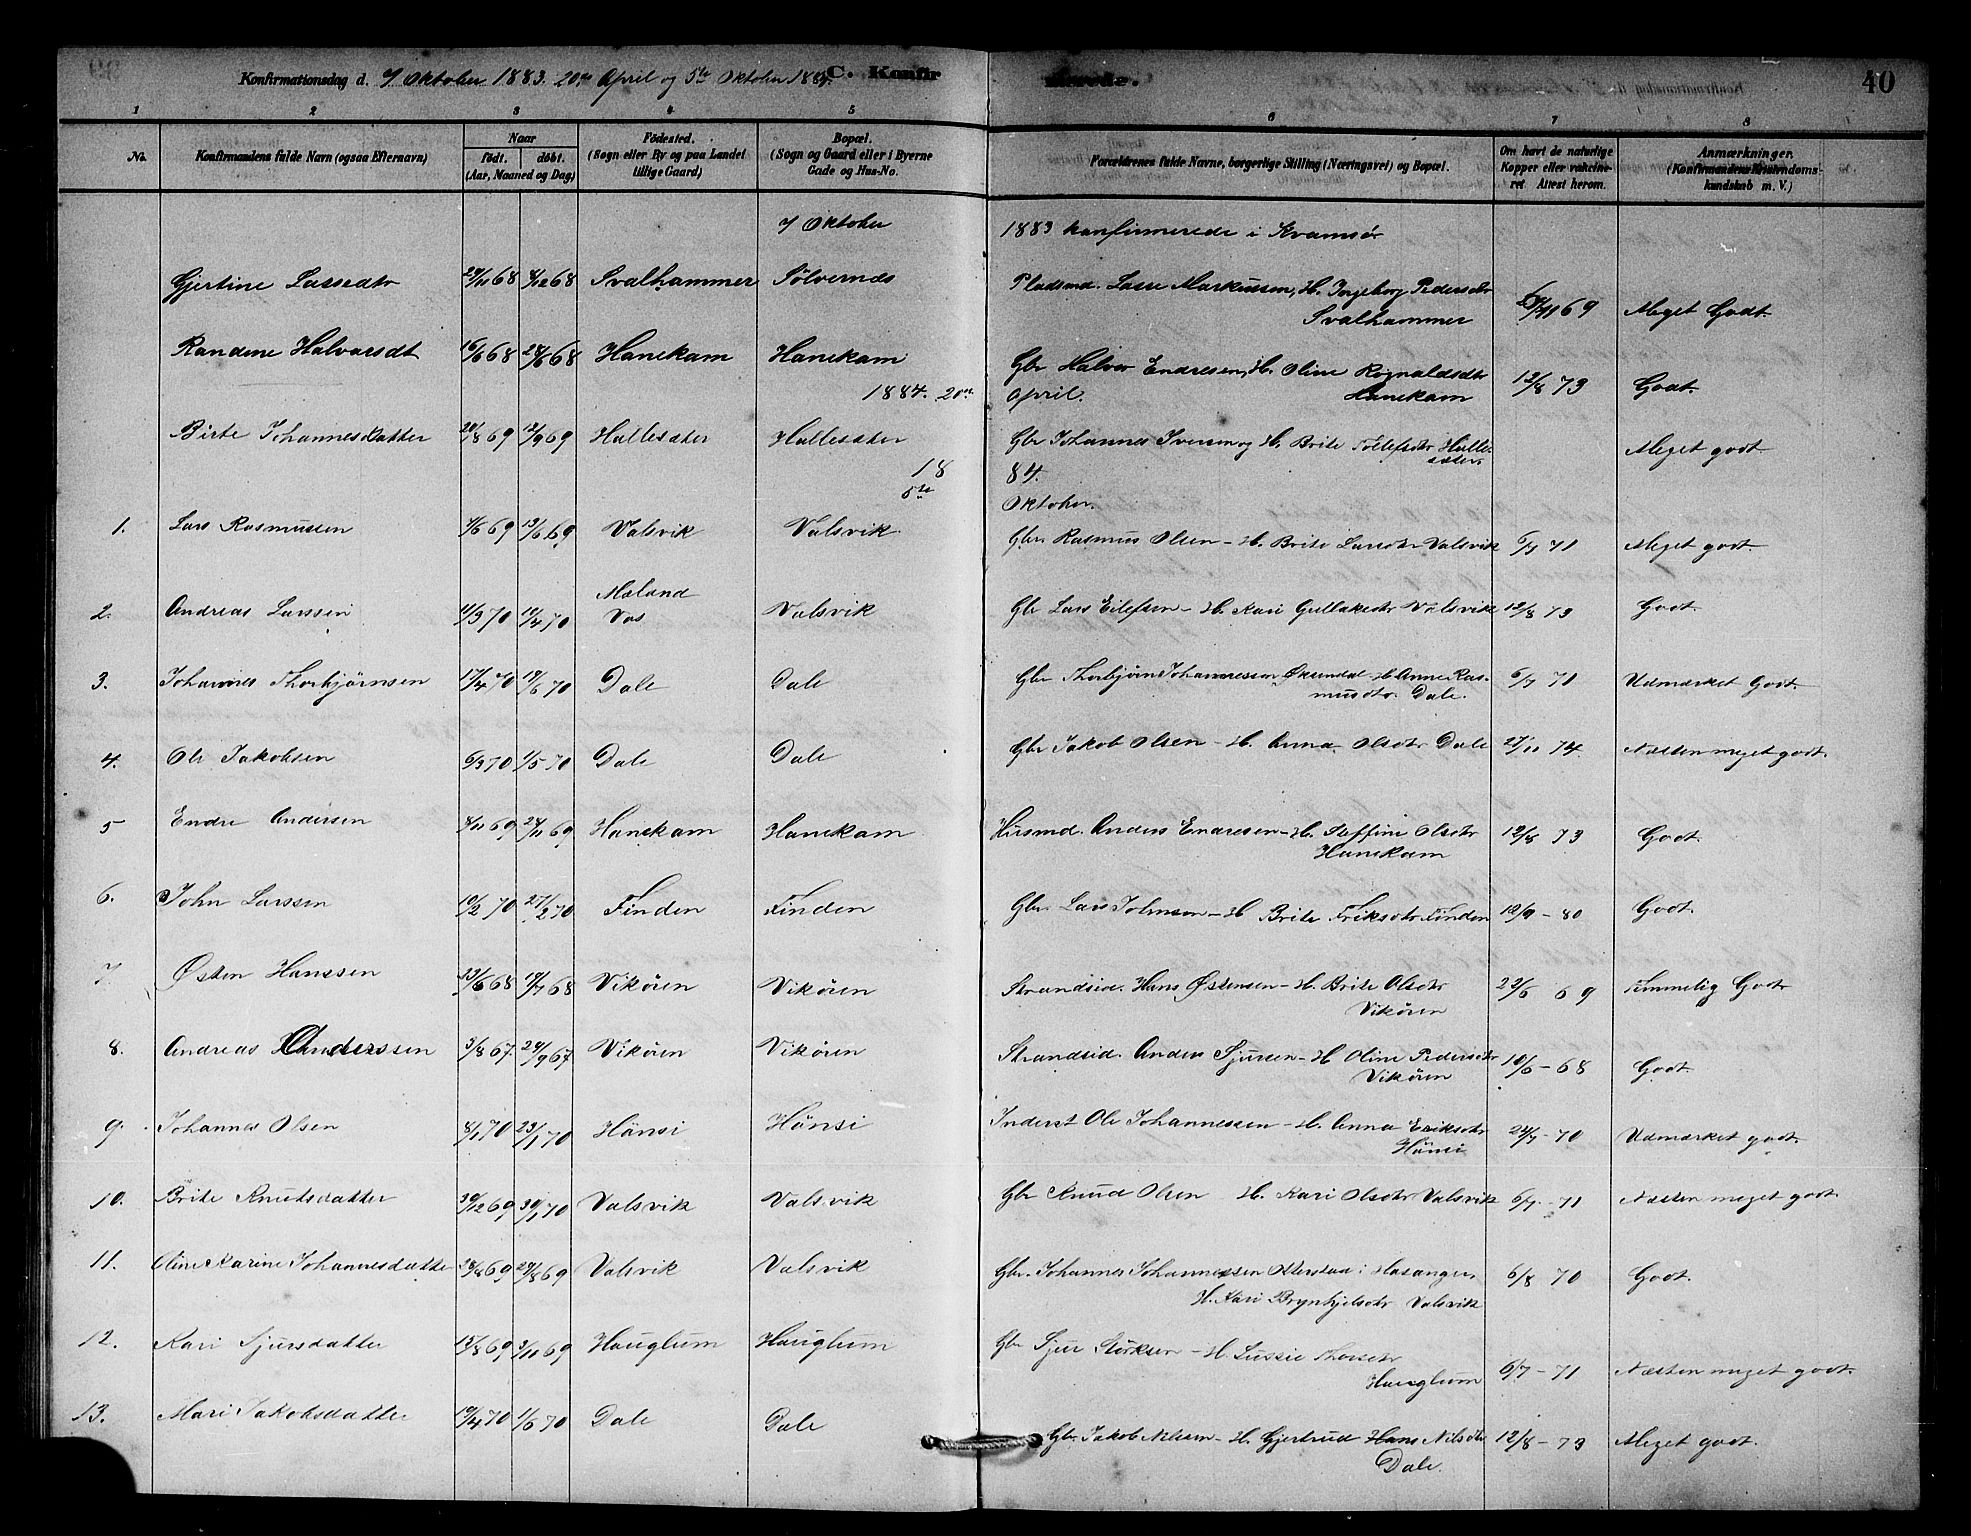 Konfirmationsdag d. 7 Oktober 1883. 20de April og 5te Oktober 1884. C. Konfirmerede. 40
1 2 3 4 5 6 7 8
No. Konfirmandens fulde Navn (ogsaa Efternavn) Naar født. døbt. (Aar, Maaned og Dag) Fødested. (Sogn eller By og paa Landet tillige Gaard) Bopæl. (Sogn og Gaard eller i Byerne Gade og Hus-No. Forældrenes fulde Navne, borgerlige Stilling (Næringsvei) og Bopæl. Om havt de naturlige Kopper eller vakcineret. Attest herom. Anmærkninger. (Konfirmandens Kristendomskundskab m. V.)
7 Oktober 1883 konfirmerede i Kvamsør
Gjertine Lassedtr 29/11 68 8/12 68 Svalhammer Sølvernæs Pladsmd. Lasse Markussen, H. Ingeborg Pedersdtr
Svalhammer /11 69 Meget Godt.
Randene Halvorsdt 16/6 68 28/6 68 Hanekam Hanekam Gbr Halvor Endresen, H. Oline Rognaldsdtr
Hanekam 12/8 73 Godt.
1884. 20de April.
Birte Johannesdatter 20/8 69 12/9 69 Hallesæter Hallesæter Gbr Johannes Iversen og H. Brite Tollefsdtr Hallesæter Meget godt.
1884.
5te Oktober.
1. Lars Rasmussen 7/6 69 13/6 69 Valsvik Valsvik Gbr. Rasmus Olsen - H. Brite Larsdtr Valsvik 6/7 71 Meget godt.
2. Andreas Larssen 11/3 70 17/4 70 Mæland
Vos Valsvik Gbr Lars Eilefsen - H. Kari Gullaksdtr Valsvik 12/8 73 Godt.
3. Johannes Thorbjørnsen 17/4 70 19/6 70 Dale Dale Gbr Thorbjørn Johannessen H. Anne Rasmusdtr. Dale. 6/7 71 Udmærket Godt.
4. Ole Jakobsen 6/3 70 1/5 70 Dale Dale Gbr Jakob Olsen - H. Anna Olsdtr Dale 27/11 74. Næsten meget godt.
5 Endre Andersen 8/11 69 28/11 69 Hanekam Hanekam Husmd. Anders Endresen - H. Steffine Olsdtr
Hanekam 12/8 73 Godt.
6. John Larssen 10/2 70 27/2 70 Finden Finden Gbr. Lars Johnsen - H Brite Eriksdtr Finden 12/9 - 80 Godt.
7. Østen Hanssen 23/6 68 19/7 68 Vikøren Vikøren Strandsid. Hans Østensen - H. Brite Olsdtr
Vikøren 22/6 69 temmelig Godt
8. Andreas Anderssen 3/8 67. 29/9 67 Vikøren Vikøren Strandsid. Anders Sjursen - H Oline Pedersdtr
Vikøren 10/6 - 68 Godt.
9. Johannes Olsen 8/1 70 23/1 70 Hønsi Hønsi Inderst Ole Johannessen - H. Anna Eriksdtr
Hønsi 24/7 - 70 Udmærket godt.
10. Brite Knutsdatter 30/12 69 30/1 70 Valsvik Valsvik Gbr Knud Olsen - H. Kari Olsdtr Valsvik 6/7 - 71 Næsten meget godt
11. Oline Karine Johannesdatter 28/8 69 29/8 69 Valsvik Valsvik Gbr. Johannes Johannessen Osterstad i Hosanger,
H. Kari Brynhjelsdtr Valsvik 6/8 70 Godt.
12. Kari Sjursdatter 15/8 69 3/11 69 Hauglum Hauglum Gbr Sjur Størksen - H. Sussie Thorsdtr
Hauglum 6/7 - 71 Næsten meget godt.
13. Mari Jakobsdatter 19/4 70 1/6 70 Dale Dale Gbr. Jakob Nilssen - H. Gjertrud Hans Nilsdtr
Dale. 12/8 - 73 Meget godt.